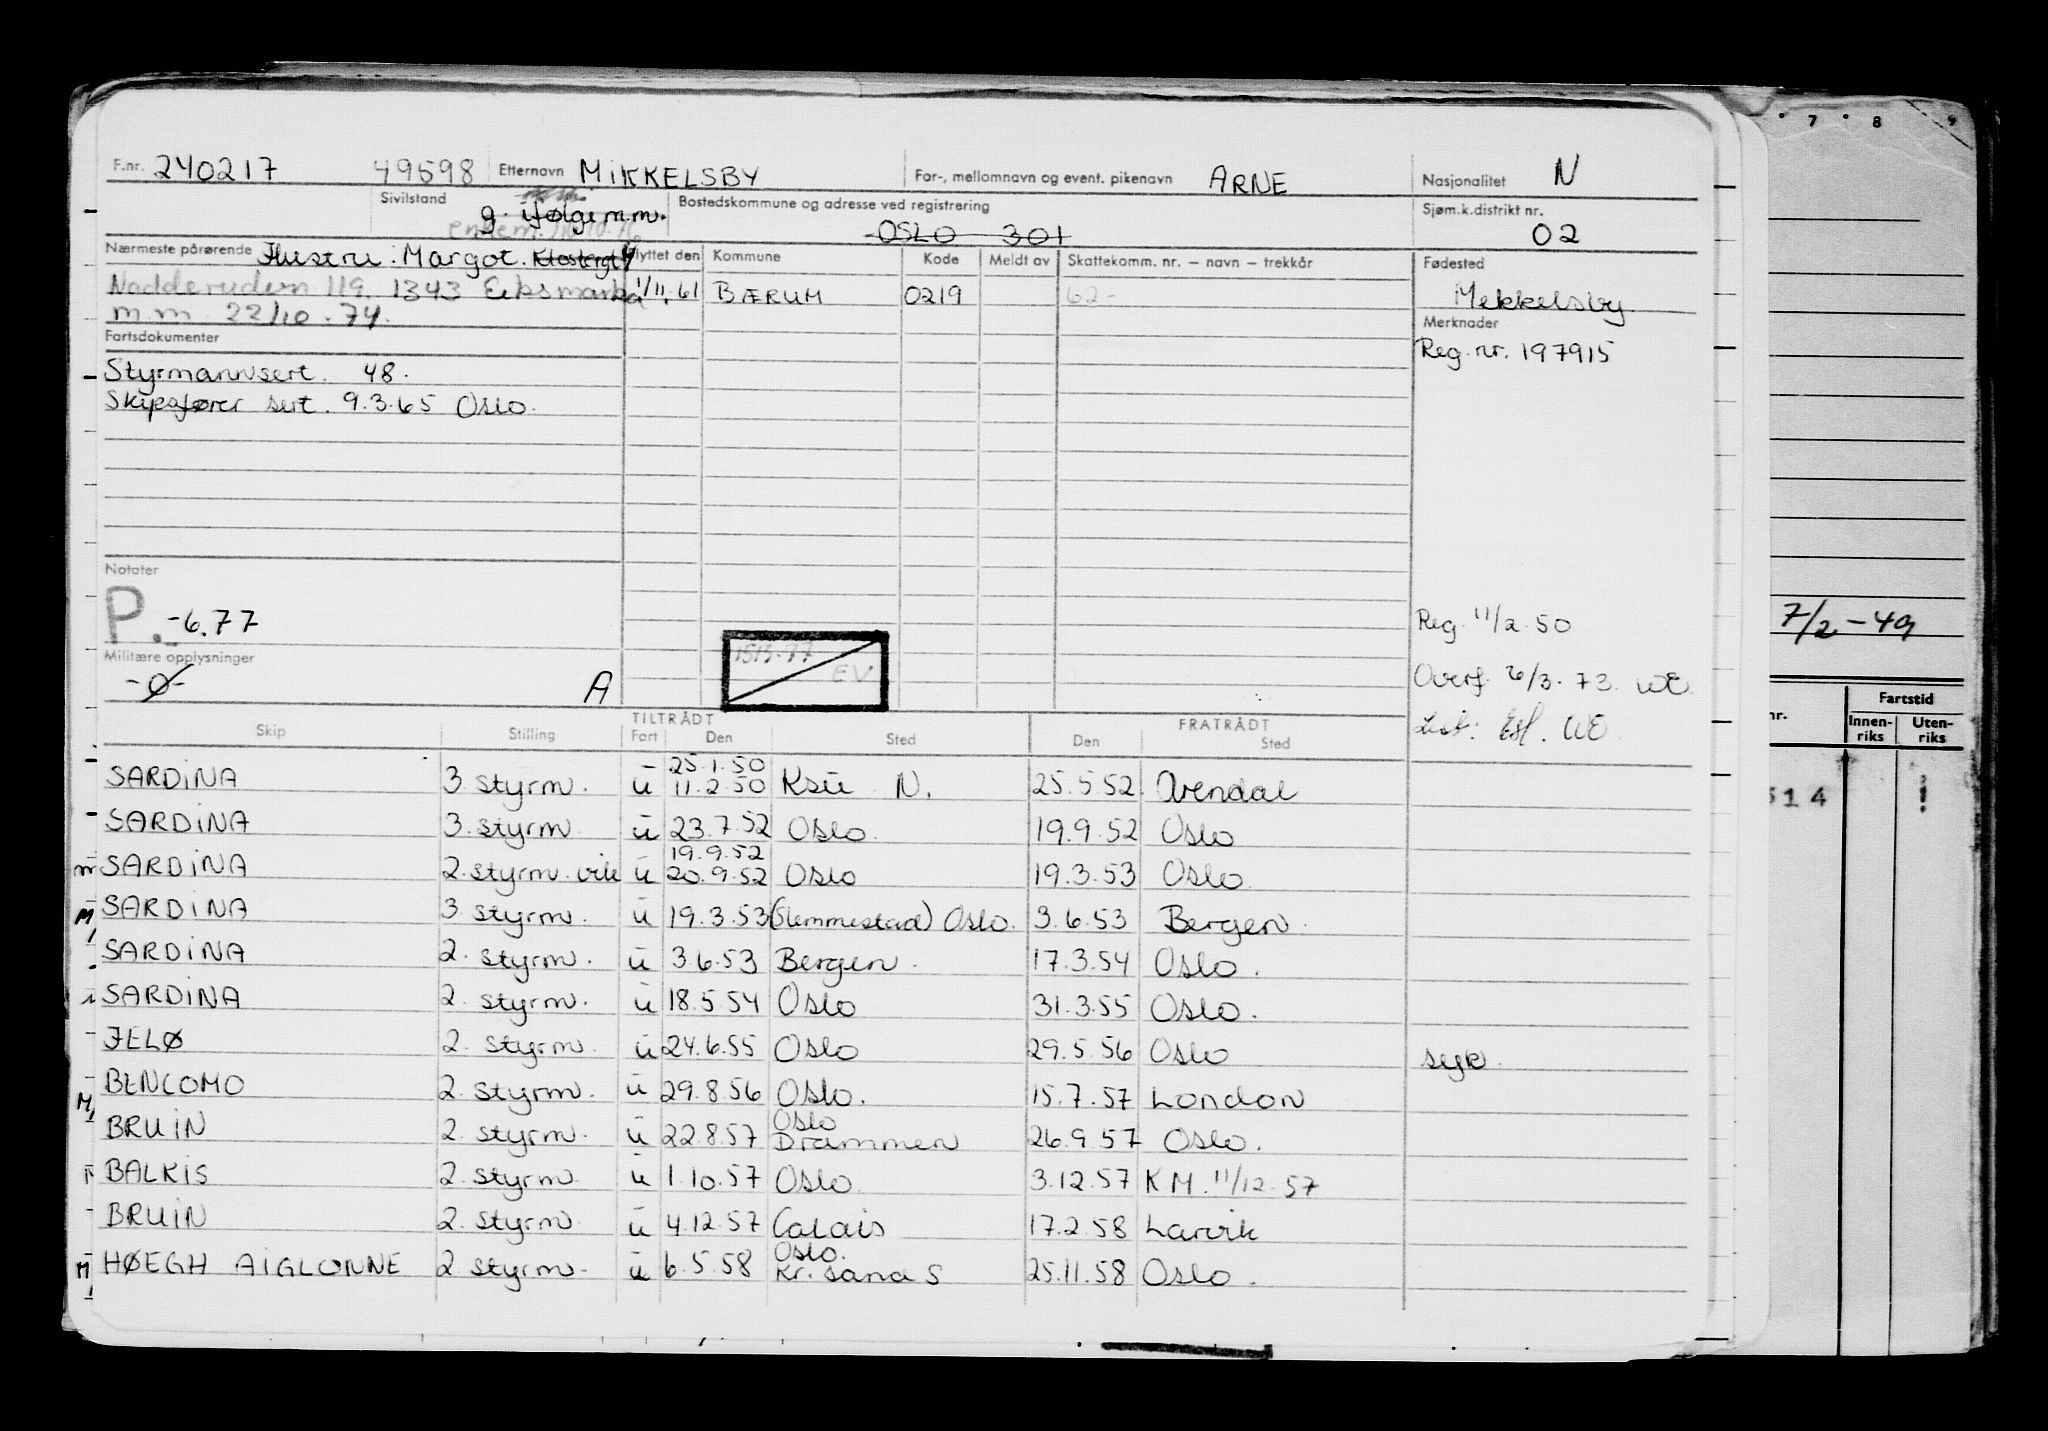 F.nr. 240217 49598 Etternavn MIKKELSBY For-, mellomnavn og event. pikenavn ARNE Nasjonalitet N
Sivilstand g. ifølge m.m. Bostedskommune og adresse ved registrering OSLO 301 Sjøm.k.distrikt nr. 02
Nærmeste pårørende Hustru: Margot. Klostergt 4 Flyttet den Kommune Kode Meldt av Skattekomm. nr. – navn – trekkår Fødested
Nadderudvn 119. 1343 Eiksmarka 1/11.61 BÆRUM 0219 62- Mekkelsby.
m.m. 22/10-74. Merknader
Fartsdokumenter Reg. nr. 197915
Styrmannsert. 48.
Skipsfører sert. 9.3.65 Oslo.
Notater
P. -6.77 Reg. 11/2.50 7/2-49
1513.77 EV
Militære opplysninger
-0- A Overf. 6/3.73. WE
List: Esf. WE
TILTRÅDT FRATRÅDT
Skip Stilling Fart Den Sted Den Sted
25.1.50
SARDINA 3 styrm. u 11.2.50 Ksu N. 25.5.52. Arendal
SARDINA 3. styrm u 23.7.52 Oslo. 19.9.52 Oslo
19.9.52
SARDINA 2. styrm. vik u 20.9.52 Oslo 19.3.53 Oslo
SARDINA 3 styrm. u 19.3.53 (Slemmestad) Oslo. 3.6.53 Bergen.
SARDINA 2. styrm. u 3.6.53 Bergen. 17.3.54 Oslo.
SARDINA 2. styrm. u 18.5.54 Oslo 31.3.55 Oslo.
JELØ 2. styrm. u 24.6.55 Oslo 29.5.56 Oslo syk.
BENCOMO 2. styrm. u 29.8.56 Oslo. 15.7.57 London
Oslo
BRUIN 2. styrm. u 22.8.57 Drammen 26.9.57 Oslo.
BALKIS 2. styrm. u 1.10.57 Oslo 3.12.57 KM. 11/12.57
BRUIN 2. styrm. u 4.12.57 Calais 17.2.58 Larvik
Oslo.
HØEGH AIGLONNE 2. styrm. u 6.5.58 Kr. sand S 25.11.58 Oslo.
7 8 9
nr. Fartstid
Innenriks Utenriks
514 !